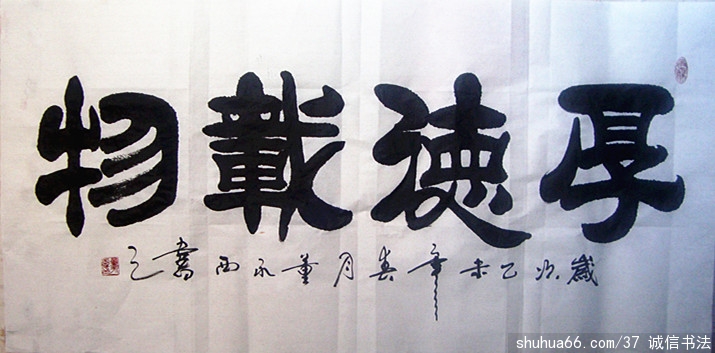 厚德載物
歲次乙未年春月董永西書之
shuhua66.com/37 诚信书法